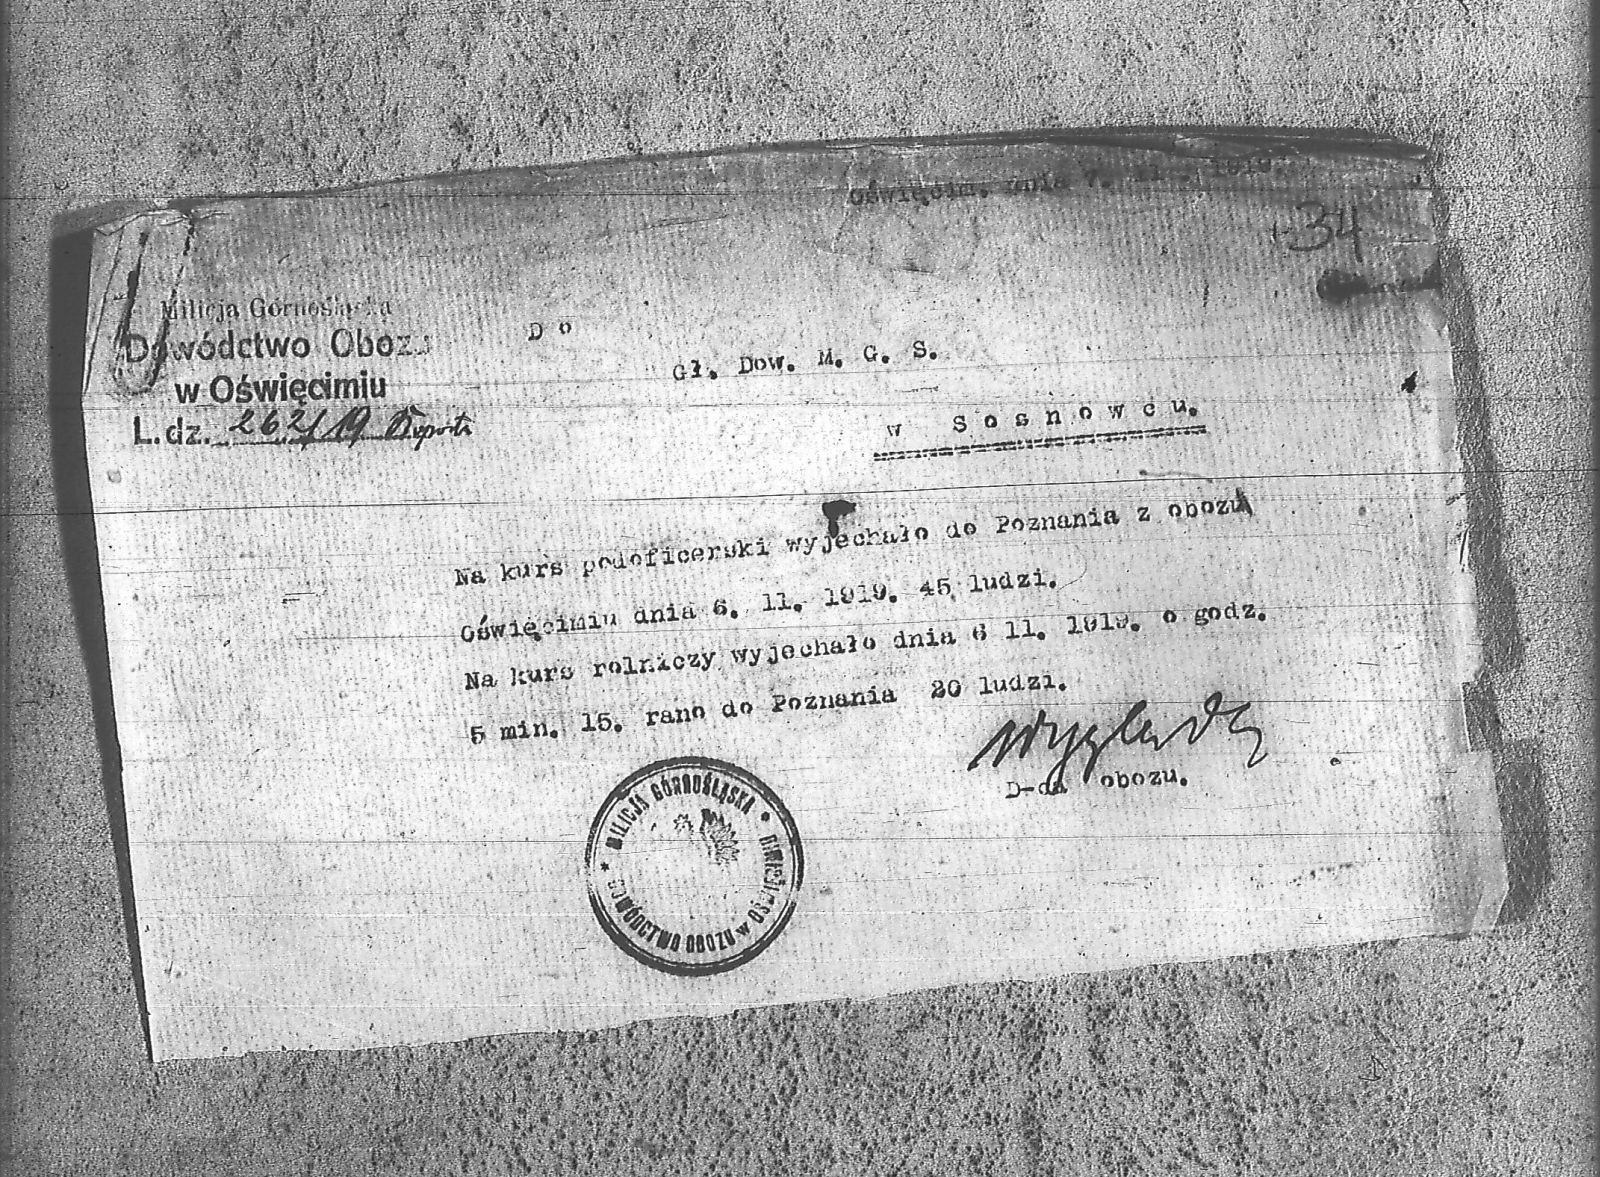 Oświęcim, dnia 7. 11. 1919.
34
Milicja Górnośląska
Dowództwo Obozu
w Oświęcimiu
L. dz. 262/19
Do
Gł. Dow. M. G. S.
w Sosnowcu.
Na kurs podoficerski wyjechało do Poznania z obozu
Oświęcimiu dnia 6. 11. 1919. 45 ludzi.
Na kurs rolniczy wyjechało dnia 6 11. 1919. o godz.
5 min. 15. rano do Poznania 20 ludzi.
D-da obozu.
MILICJA GÓRNOŚLĄSKA
DOWÓDCTWO OBOZU w OŚWIĘCIMIU